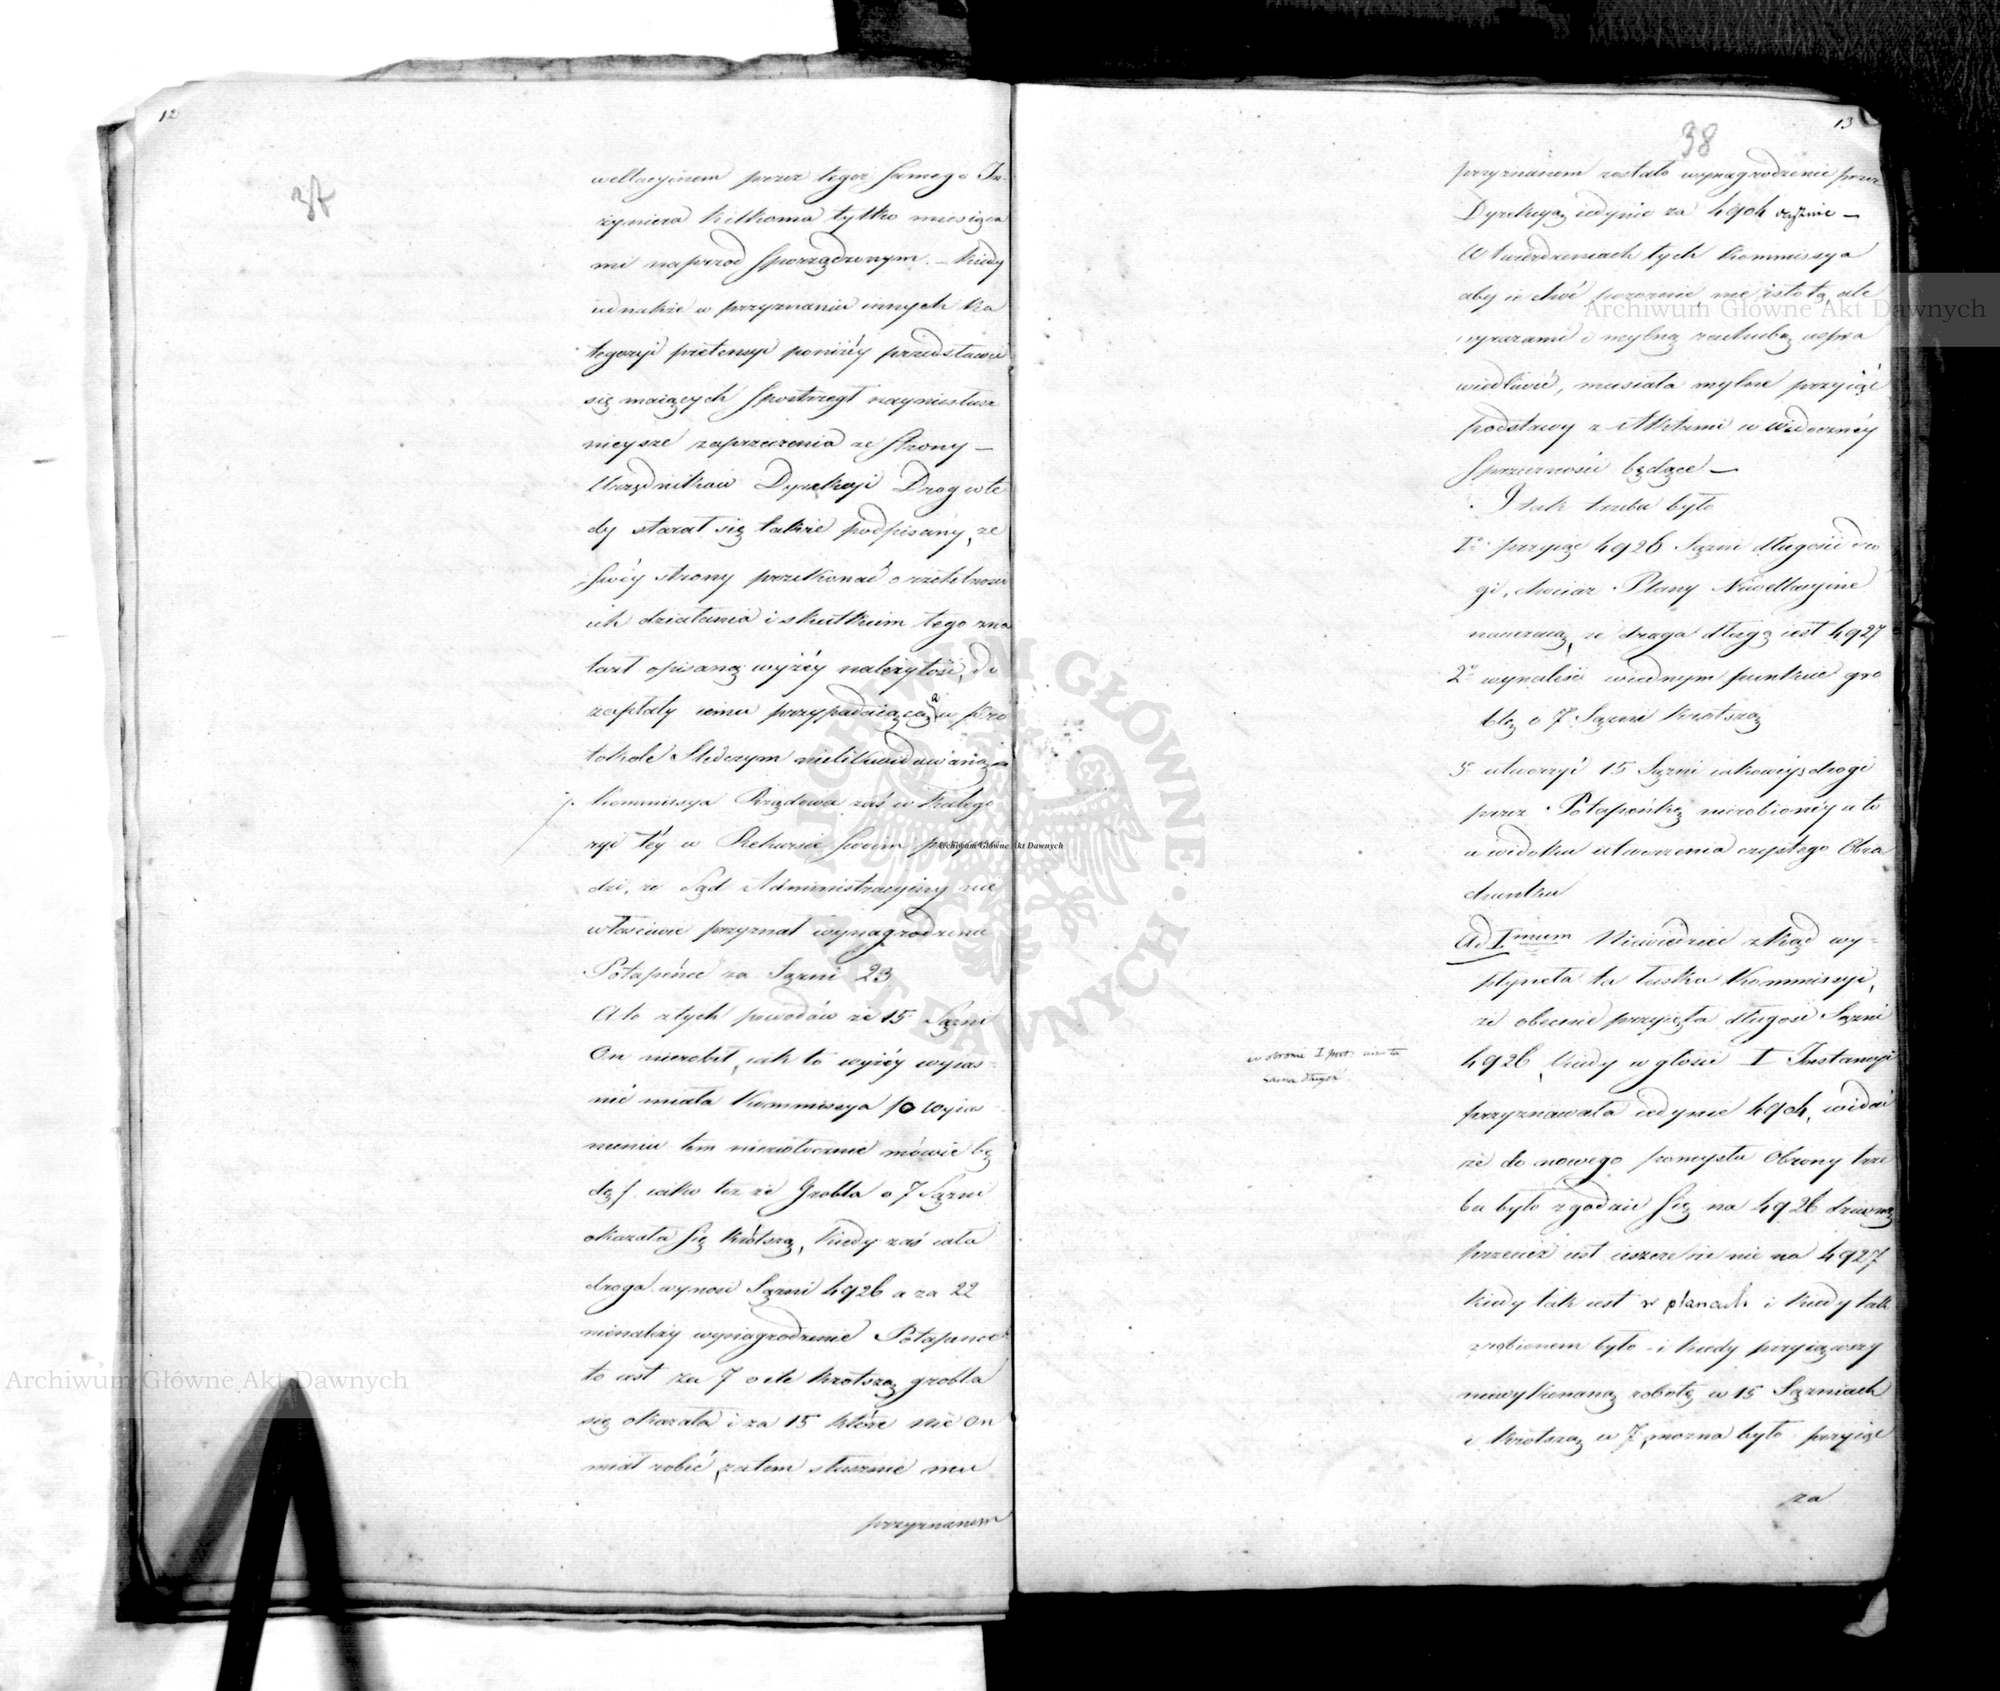 12
37
wellacyinem przez tegoż samego In-
żyniera kilkoma tylko miesiąca
mi naprzod sporządzonym. – Kiedy
iednakże w przyznaniu innych ka
tegoryi pretensyi poniżéy przedstawić
się maiących spostrzegł nayniesłusz
nieysze zaprzeczenia ze strony –
Urzędników Dyrekcyi Drog wte
dy starał się także podpisany, ze
swéy strony przekonać o rzetelności
ich działania i skutkiem tego zna
lazł opisaną wyżéy należytość, do
zapłaty iemu przypadaiącą a w Pro
tokole Śledczym nielikwidowaną –
Kommissya Rządowa zaś w katego
ryi téy w Rekursie swoim
dzi, że Sąd Administracyjny nie
właściwie przyznał wynagrodzenie
Potapeńce za Sążni 23
A to z tych powodów że 15 Sążni
On nierobił, iak to wyżéy wyias-
nić miała Kommissya /o wyias
nieniu tem niezwłocznie mówić bę
dę/. iako też że Grobla o 7 Sążni
okazała się krótszą, kiedy zaś cała
droga wynosi Sążni 4926 a za 22
nienależy wynagrodzenie Potapence
to iest za 7 o ile krótszą grobla
się okazała i za 15 które nie on
miał robić, zatem słusznie mu
przyznanem
13
38
przyznanem zostało wynagrodzenie przez
Dyrekcyą iedynie za 4904
W twierdzeniach tych Kommissya
aby ie choć pozornie, nie istotą ale
wyrazami i mylną rachubą uspra
wiedliwić, musiała mylne przyiąć
podstawy z Aktami w widocznéy
sprzeczności będące –
I tak trzeba było
1o przyiąć 4926 Sążni długości dro
gi, chociaż Plany Niwellacyine
nauczaią, że droga długą iest 4927
2o wynaleść w iednym punkcie gro
blą o 7 Sążni krotszą
3o utworzyć 15 Sążni iakowéyś drogi
przez Potapeńkę nierobionéy a to
w widoku utworzenia czystego Obra
chunku
Ad Imum Niewiedzieć zkąd wy-
płynęła ta łaska Kommissyi,
że obecnie przyięła długość Sążni
4926, kiedy w głosie I Instancyi
przyznawała iedynie 4904, widać
że do nowego pomysłu Obrony trze
ba było zgodzić się na 4926 dziwną
przecież iest ieszcze że nie na 4927
kiedy tak iest w planach i kiedy tak
zrobionem było – i kiedy przyiąwszy
niewykonaną robotę w 15 Sążniach
i krotszą w 7, można było przyiąć
za
w obronie I nie ta
sama długość
Archiwum Główne Akt Dawnych
Archiwum Główne Akt Dawnych
Archiwum Główne Akt Dawnych
ARCHIWUM GŁÓWNE AKT DAWNYCH